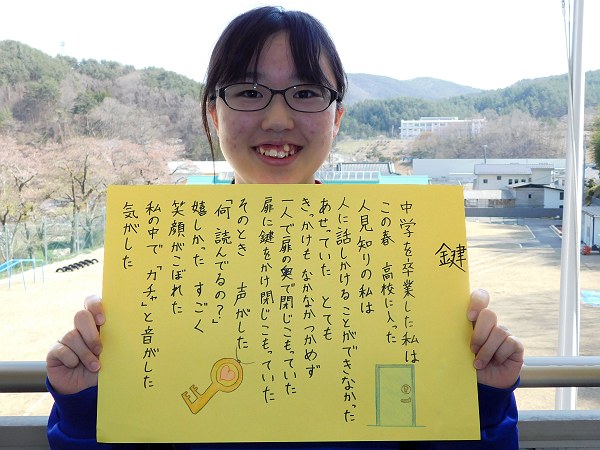 鍵
中学を卒業した私は
この春　高校に入った
人見知りの私は
人に話しかけることができなかった
あせっていた　とても
きっかけも　なかなかつかめず
一人で扉の奥で閉じこもっていた
扉に鍵をかけ閉じこもっていた
そのとき　声がした
「何　読んでるの？」
嬉しかった　すごく
笑顔がこぼれた
私の中で「ガチャ」と音がした
気がした